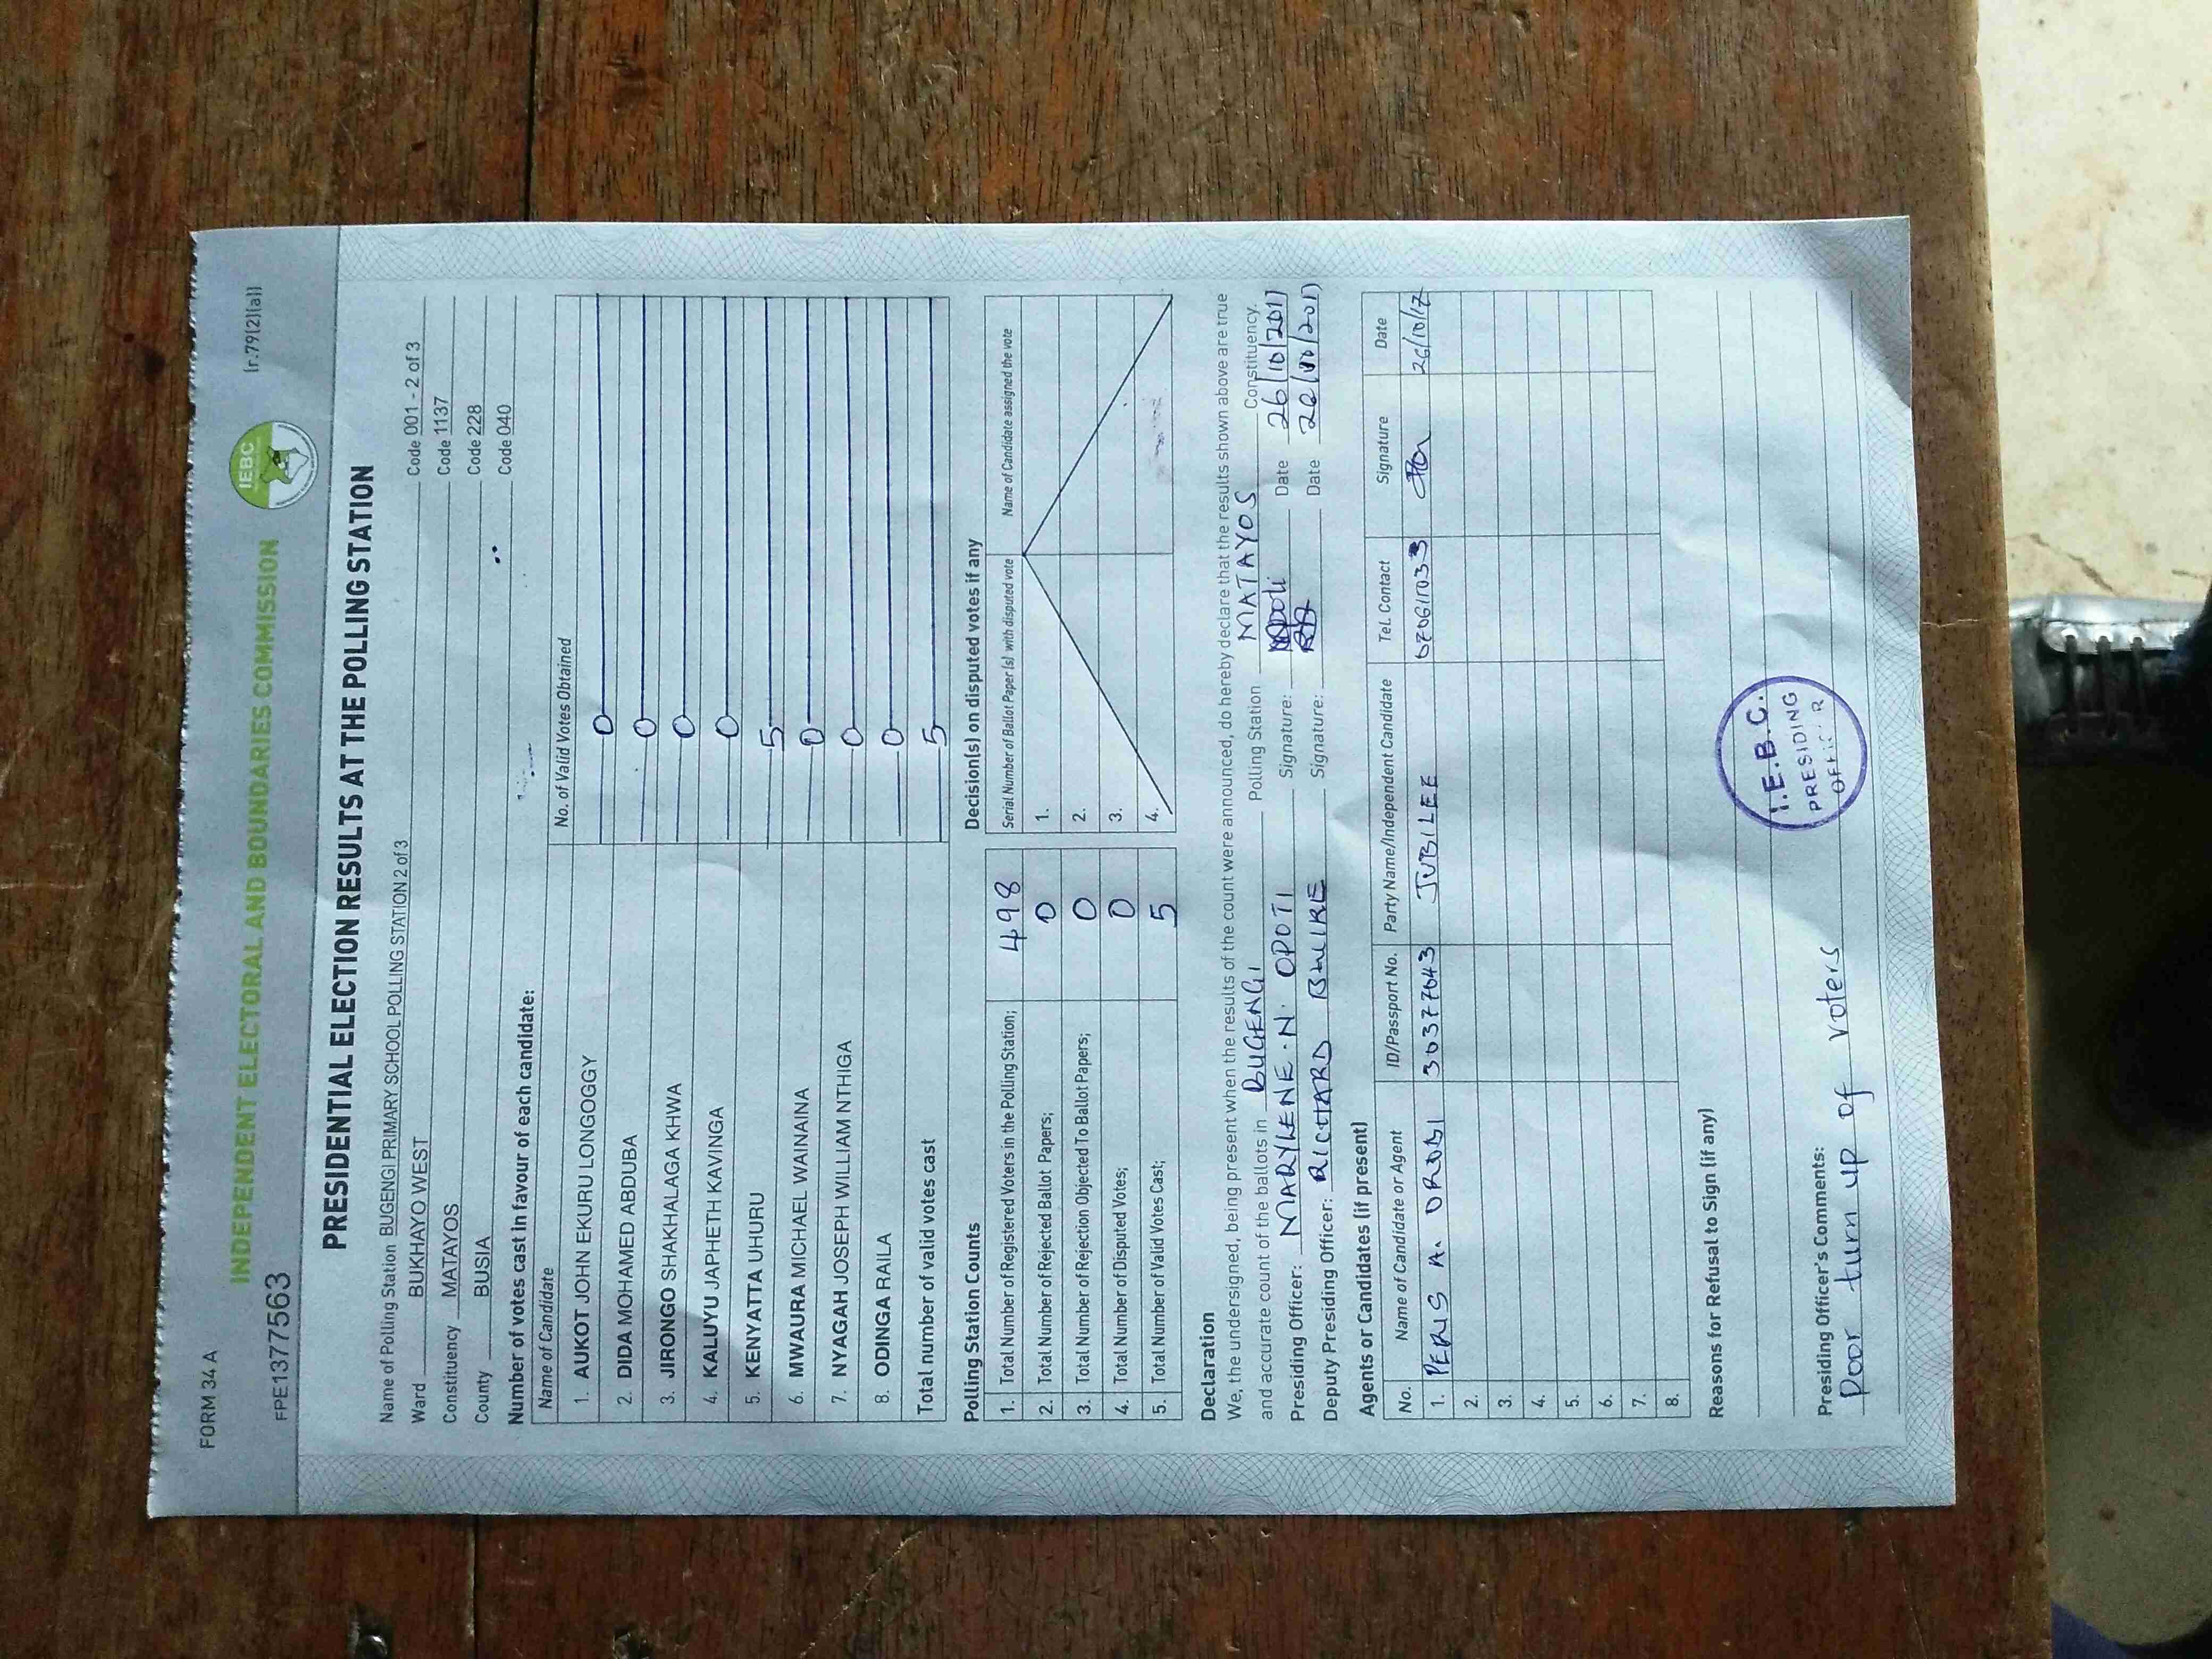 FORM 34 A
(r.79(2)(a))
INDEPENDENT ELECTORAL AND BOUNDARIES COMMISSION
IEBC
FPE1377563
PRESIDENTIAL ELECTION RESULTS AT THE POLLING STATION
Name of Polling Station BUGENGI PRIMARY SCHOOL POLLING STATION 2 of 3 Code 001 - 2 of 3
Ward BUKHAYO WEST Code 1137
Constituency MATAYOS Code 228
County BUSIA Code 040
Number of votes cast in favour of each candidate:
Name of Candidate No. of Valid Votes Obtained
1. AUKOT JOHN EKURU LONGOGGY 0
2. DIDA MOHAMED ABDUBA 0
3. JIRONGO SHAKHALAGA KHWA 0
4. KALUYU JAPHETH KAVINGA 0
5. KENYATTA UHURU 5
6. MWAURA MICHAEL WAINAINA 0
7. NYAGAH JOSEPH WILLIAM NTHIGA 0
8. ODINGA RAILA 0
Total number of valid votes cast 5
Polling Station Counts
1. Total Number of Registered Voters in the Polling Station; 498
2. Total Number of Rejected Ballot Papers; 0
3. Total Number of Rejection Objected To Ballot Papers; 0
4. Total Number of Disputed Votes; 0
5. Total Number of Valid Votes Cast; 5
Decision(s) on disputed votes if any
Serial Number of Ballot Paper (s) with disputed vote Name of Candidate assigned the vote
1.
2.
3.
4.
Declaration
We, the undersigned, being present when the results of the count were announced, do hereby declare that the results shown above are true
and accurate count of the ballots in BUGENGI Polling Station MATAYOS Constituency.
Presiding Officer: MARYLENE . N . OPOTI Signature: Date 26/10/2017
Deputy Presiding Officer: RICHARD BWIRE Signature: Date 26/10/2017
Agents or Candidates (if present)
No. Name of Candidate or Agent ID/Passport No. Party Name/Independent Candidate Tel. Contact Signature Date
1. PERIS A. 30377643 JUBILEE 26/10/17
2.
3.
4.
5.
6.
7.
8.
Reasons for Refusal to Sign (if any)
I.E.B.C.
PRESIDING
OFFICER
Presiding Officer's Comments:
Poor turn up of voters